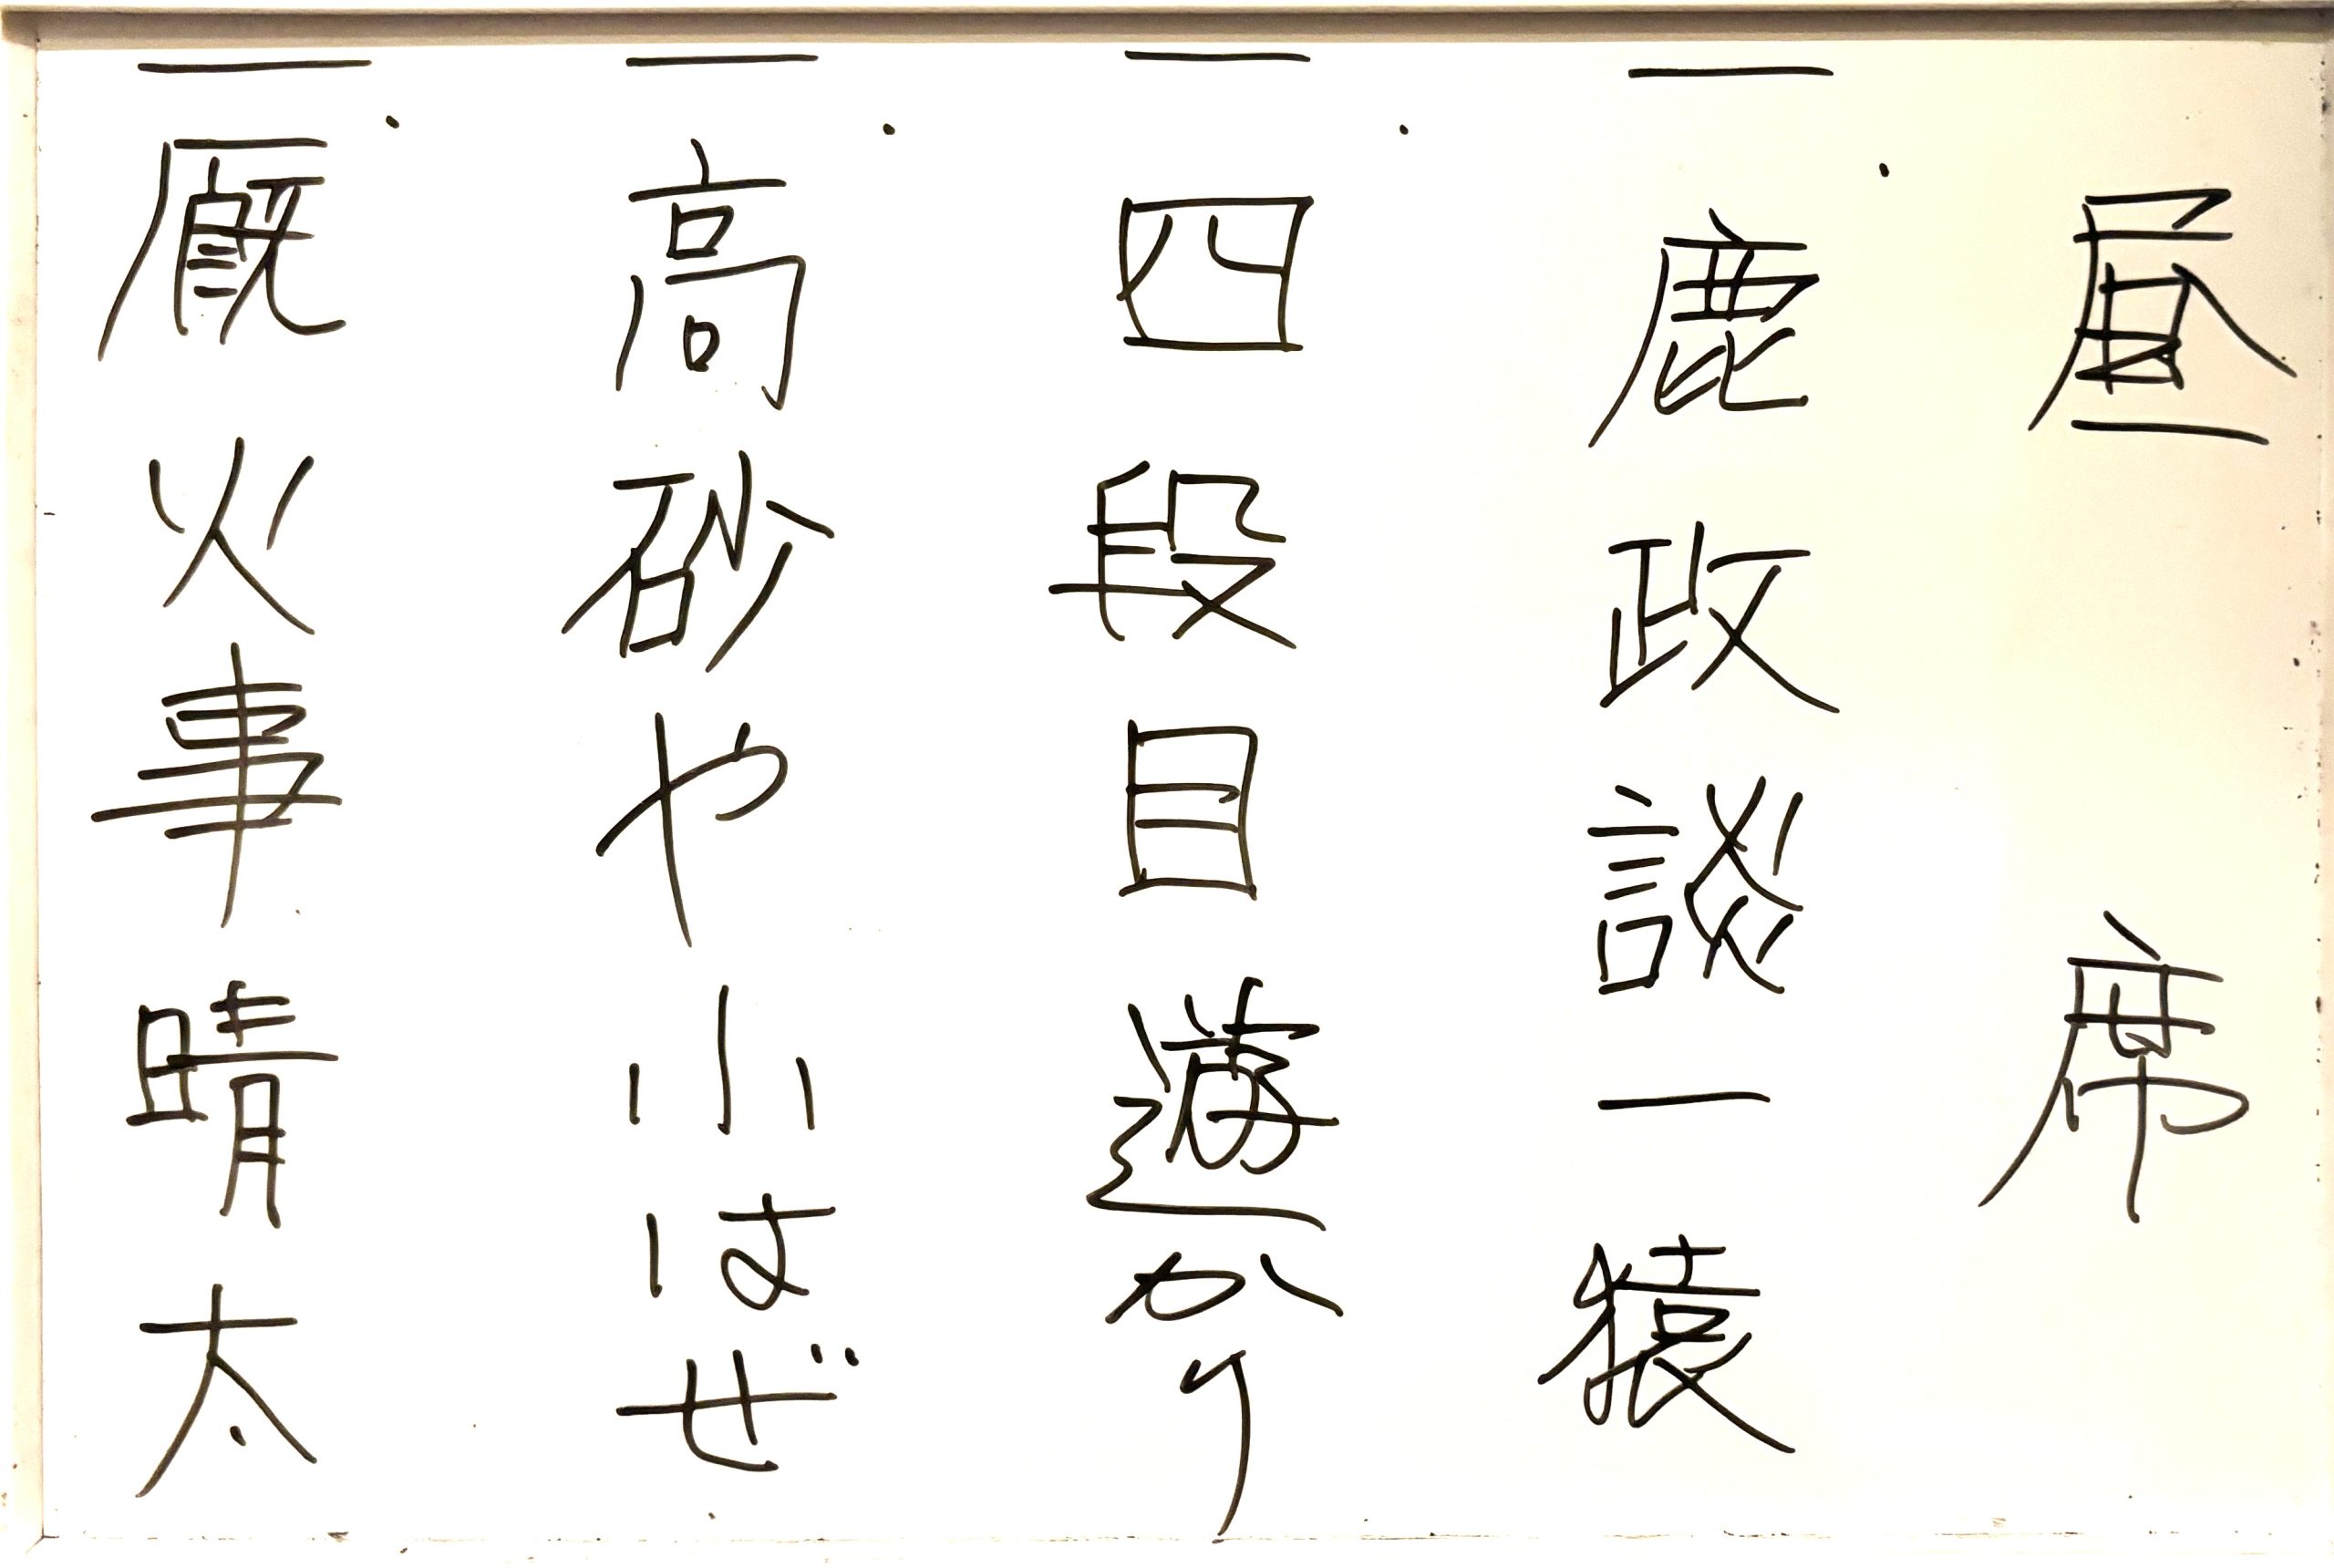 昼席
一.鹿政談 一猿
一.四段目 遊かり
一.高砂や 小はぜ
一.厩火事 晴太